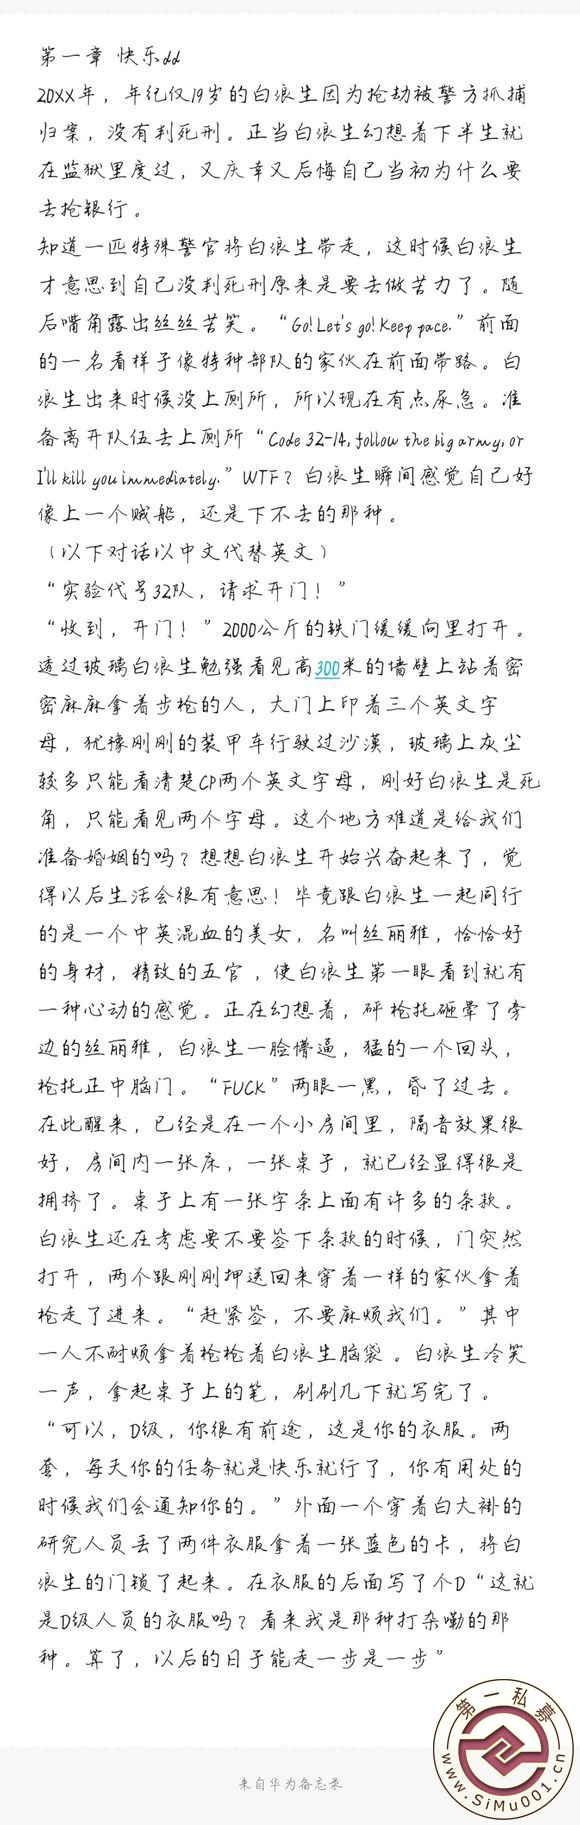 第一章 快乐dd
20XX年，年纪仅19岁的白浪生因为抢劫被警方抓捕
归案，没有判死刑。正当白浪生幻想着下半生就
在监狱里度过，又庆幸又后悔自己当初为什么要
去抢银行。
知道一匹特殊警官将白浪生带走，这时候白浪生
才意思到自己没判死刑原来是要去做苦力了。随
后嘴角露出丝丝苦笑。“Go! Let's go! Keep pace.”前面
的一名看样子像特种部队的家伙在前面带路。白
浪生出来时候没上厕所，所以现在有点尿急。准
备离开队伍去上厕所“Code 32-14, follow the big army, or
I'll kill you immediately.”WTF？白浪生瞬间感觉自己好
像上一个贼船，还是下不去的那种。
（以下对话以中文代替英文）
“实验代号32队，请求开门！”
“收到，开门！”2000公斤的铁门缓缓向里打开。
透过玻璃白浪生勉强看见高300米的墙壁上站着密
密麻麻拿着步枪的人，大门上印着三个英文字
母，犹豫刚刚的装甲车行驶过沙漠，玻璃上灰尘
较多只能看清楚CP两个英文字母，刚好白浪生是死
角，只能看见两个字母。这个地方难道是给我们
准备婚姻的吗？想想白浪生开始兴奋起来了，觉
得以后生活会很有意思！毕竟跟白浪生一起同行
的是一个中英混血的美女，名叫丝丽雅，恰恰好
的身材，精致的五官，使白浪生第一眼看到就有
一种心动的感觉。正在幻想着，砰枪托砸晕了旁
边的丝丽雅，白浪生一脸懵逼，猛的一个回头，
枪托正中脑门。“FUCK”两眼一黑，昏了过去。
在此醒来，已经是在一个小房间里，隔音效果很
好，房间内一张床，一张桌子，就已经显得很是
拥挤了。桌子上有一张字条上面有许多的条款。
白浪生还在考虑要不要签下条款的时候，门突然
打开，两个跟刚刚押送回来穿着一样的家伙拿着
枪走了进来。“赶紧签，不要麻烦我们。”其中
一人不耐烦拿着枪枪着白浪生脑袋。白浪生冷笑
一声，拿起桌子上的笔，刷刷几下就写完了。
“可以，D级，你很有前途，这是你的衣服。两
套，每天你的任务就是快乐就行了，你有用处的
时候我们会通知你的。”外面一个穿着白大褂的
研究人员丢了两件衣服拿着一张蓝色的卡，将白
浪生的门锁了起来。在衣服的后面写了个D“这就
是D级人员的衣服吗？看来我是那种打杂嘞的那
种。算了，以后的日子能走一步是一步”
来自华为备忘录
第一私募
www.SiMu001.cn